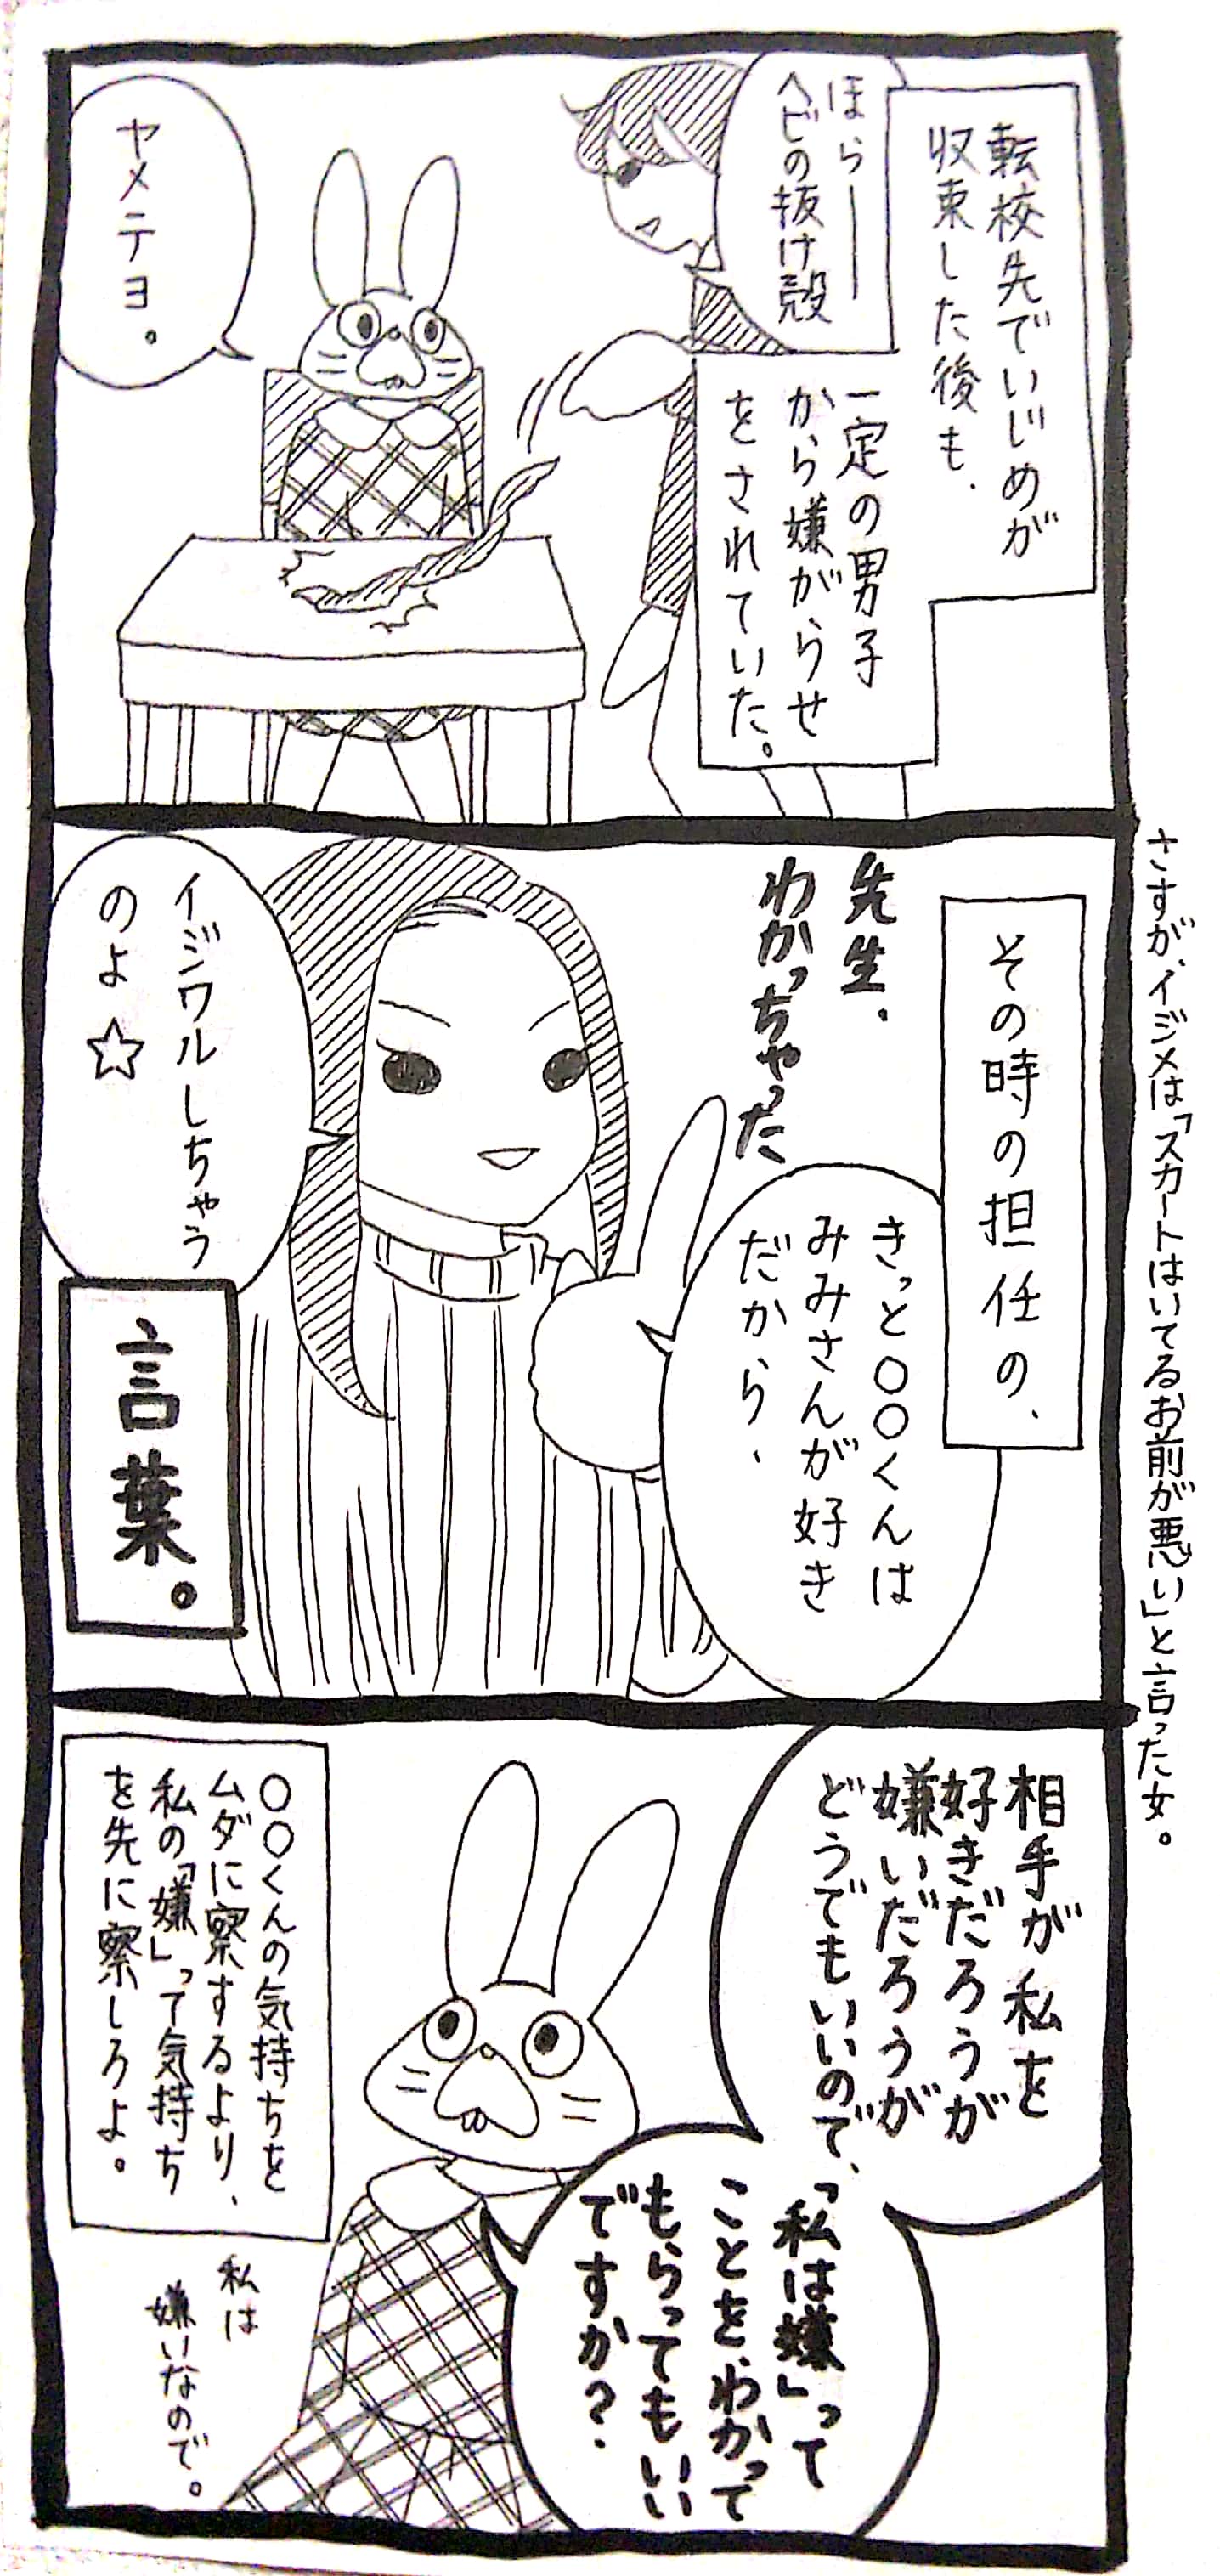 転校先でいじめが
収束した後も、
一定の男子
から嫌がらせ
をされていた。
ほらー
ヘビの抜け殻
ヤメテヨ。
その時の担任の、
先生、
わかっちゃった
きっと〇〇くんは
みみさんが好き
だから、
イジワルしちゃう
のよ☆
言葉。
さすが、イジメは「スカートはいてるお前が悪い」と言った女。
相手が私を
好きだろうが
嫌いだろうが
どうでもいいので、
「私は嫌」って
ことを、わかって
もらってもいい
ですか?
〇〇くんの気持ちを
ムダに察するより、
私の「嫌」って気持ち
を先に察しろよ。
私は
嫌いなので。